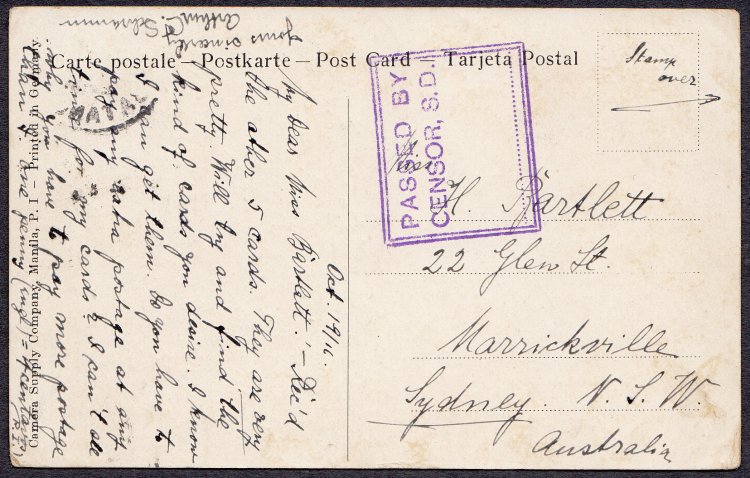 Carte postale – Postkarte – Post Card – Tarjeta Postal
Stamp
over
PASSED BY
CENSOR, S.D.I
Miss
H. Bartlett
22 Glen St.
Marrickville
Sydney. N. S. W.
Australia
Oct. 19/16
My Dear Miss Bartlett: – Rec'd
the other 5 cards. They are very
pretty. Will try and find the
kind of cards you desire. I know
I can get them. Do you have to
pay any extra postage at any
time for my cards? I can't see
why you have to pay more postage
than one penny (Engl) =
P.I.)
Yours sincerely
Arthur C.
Camera Supply Company, Manila, P. I – Printed in Germany